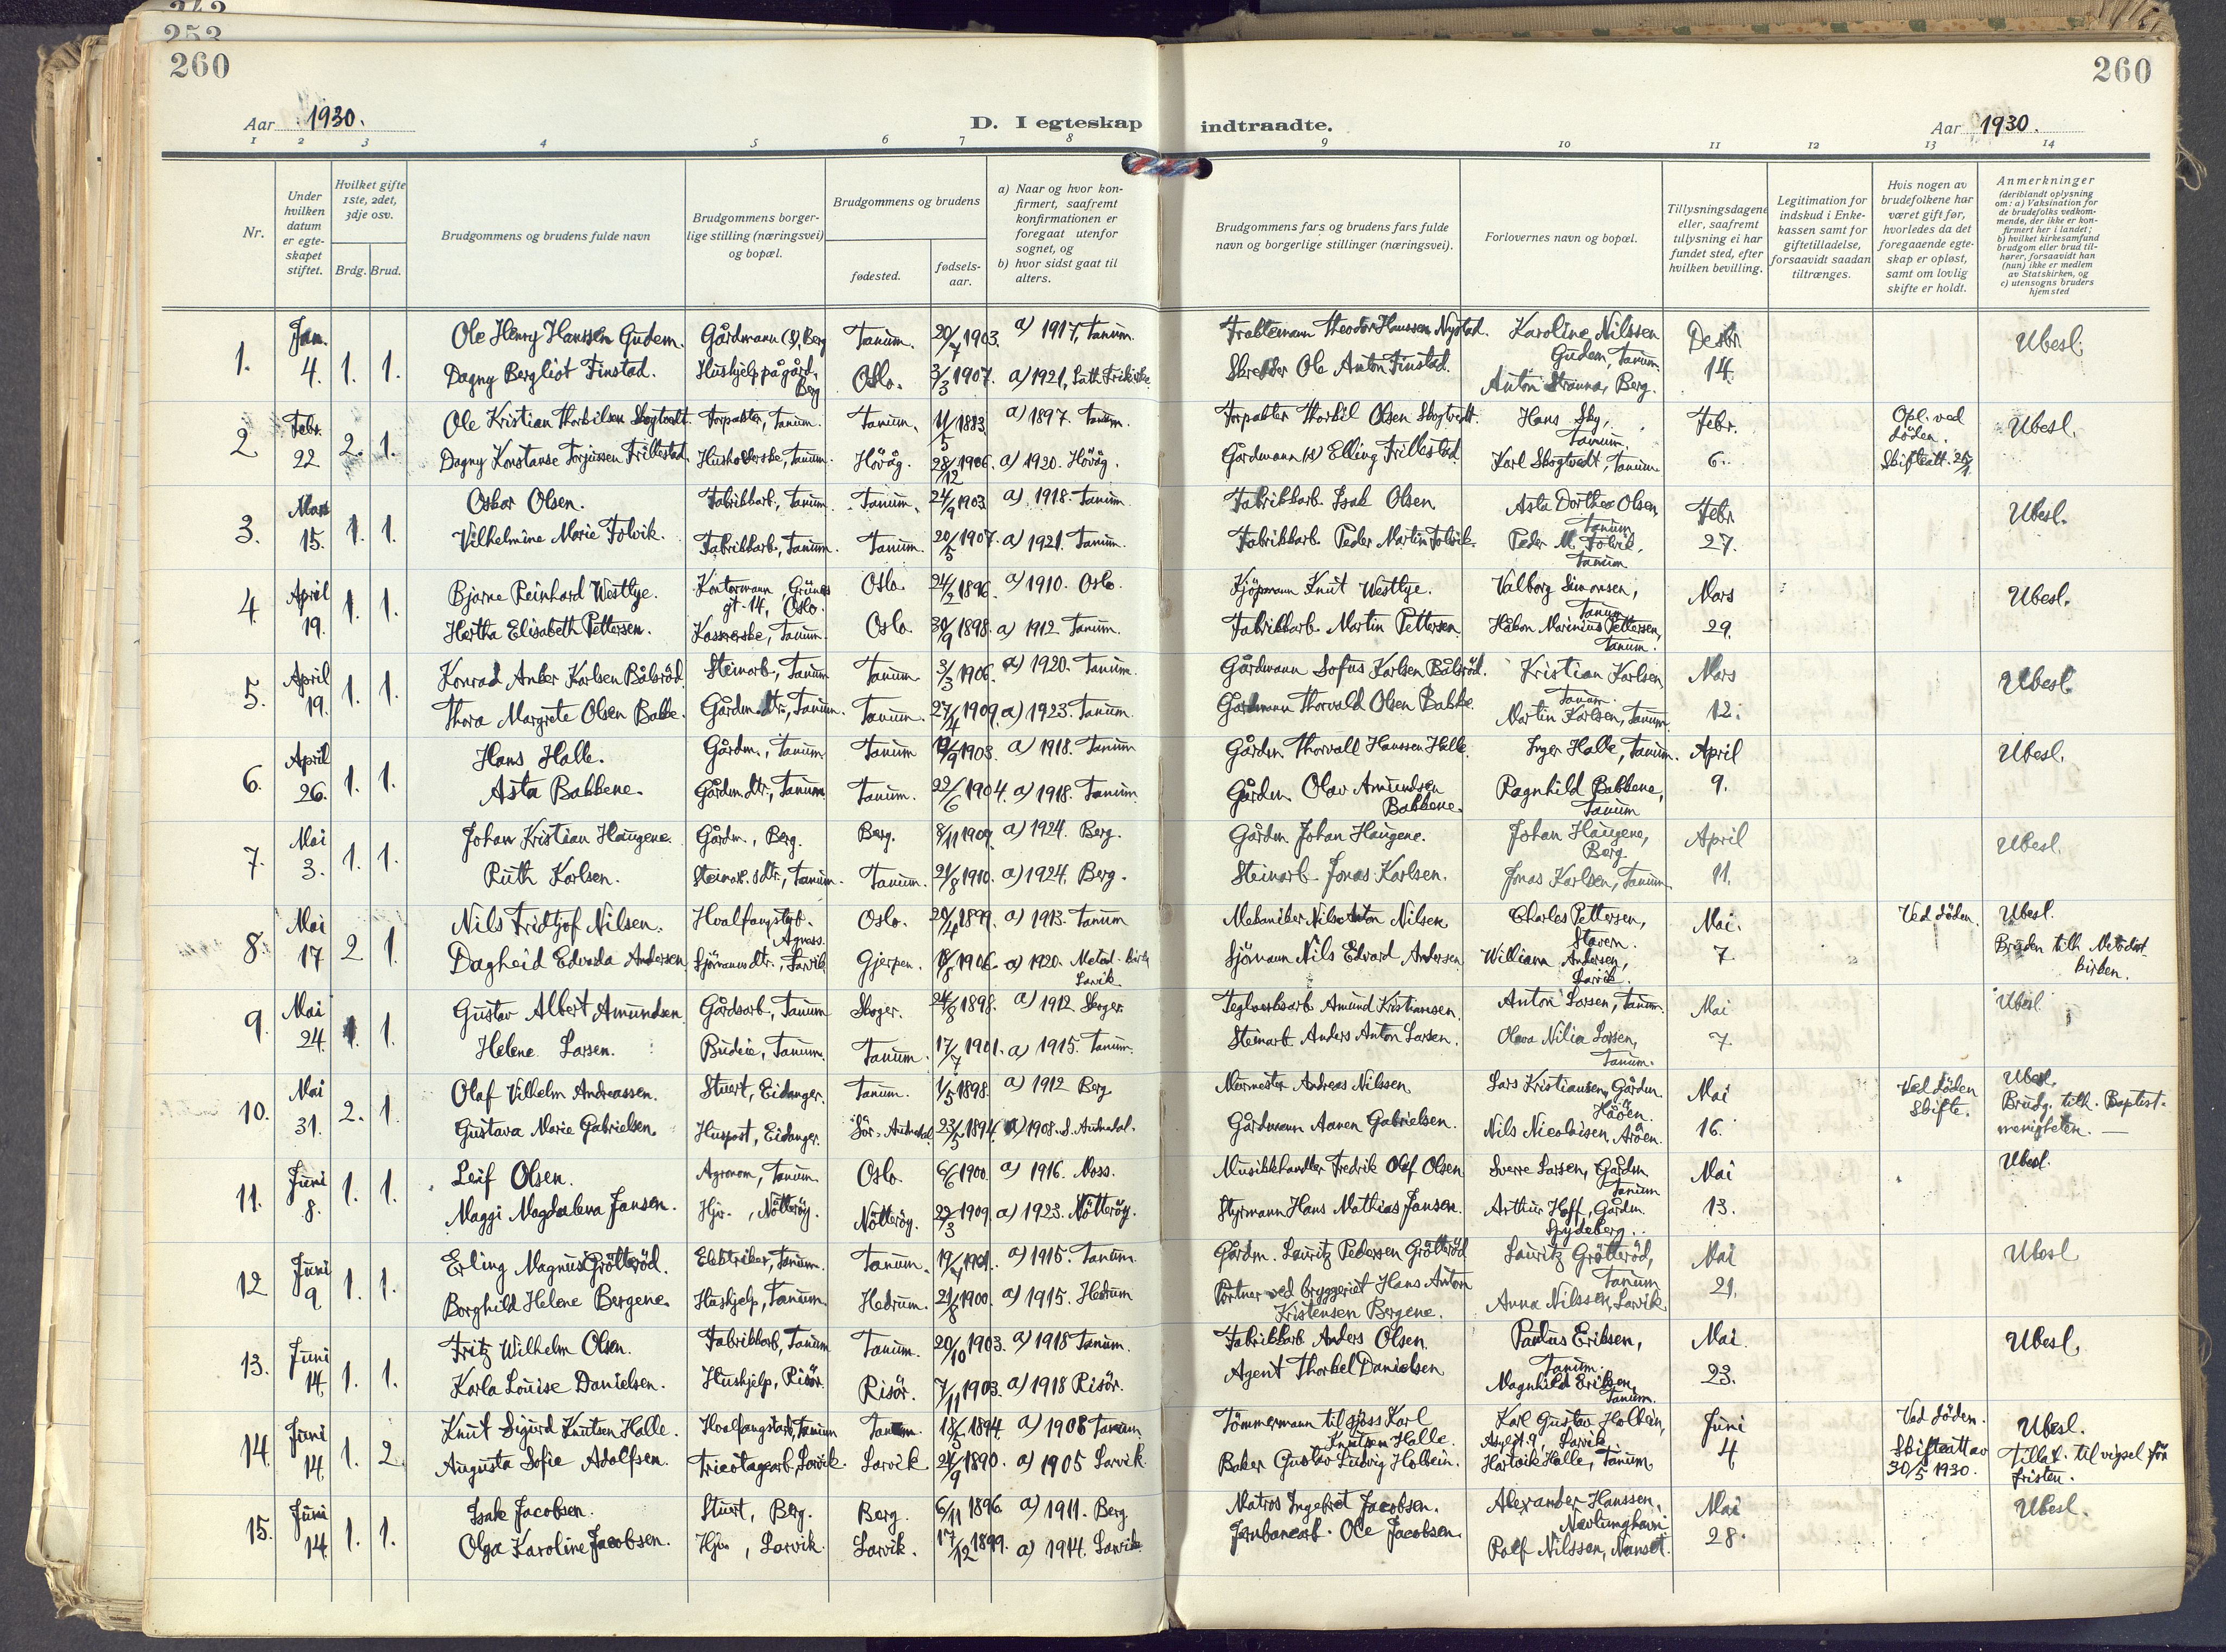 242
253
260
260
Aar 1930.
D. I egteskap indtraadte.
Aar 1930.
1 2 3 4 5 6 7 8 9 10 11 12 13 14
Nr.
Under hvilken datum er egteskapet stiftet.
Hvilket gifte 1ste, 2det, 3dje osv.
Brdg. Brud.
Brudgommens og brudens fulde navn
Brudgommens borgerlige stilling (næringsvei) og bopæl.
Brudgommens og brudens
fødested.
fødselsaar.
a) Naar og hvor konfirmert, saafremt konfirmationen er foregaat utenfor sognet, og
b) hvor sidst gaat til alters.
Brudgommens fars og brudens fars fulde navn og borgerlige stillinger (næringsvei).
Forlovernes navn og bopæl.
Tillysningsdagene eller, saafremt tillysning ei har fundet sted, efter hvilken bevilling.
Legitimation for indskud i Enkekassen samt for giftetilladelse, forsaavidt saadan tiltrænges.
Hvis nogen av brudefolkene har været gift før, hvorledes da det foregaaende egteskap er opløst, samt om lovlig skifte er holdt.
Anmerkninger (deriblandt oplysning om: a) Vaksination for de brudefolks vedkommende, der ikke er konfirmert her i landet; b) hvilket kirkesamfund brudgom eller brud tilhører, forsaavidt han (hun) ikke er medlem av Statskirken, og c) utensogns bruders hjemsted
1. Jan. 4. 1. 1. Ole Henry Hanssen Gudem. Gårdmann (S), Berg Tanum. 20/7 1903. a) 1917, Tanum. Theodor Hanssen Nystad. Karoline Nilssen Gudem, Tanum. Desbr. 14. Ubesl.
Dagny Bergliot Finstad. Hushjelp på gård, Berg Oslo. 3/3 1907. a) 1921, Luth. Frikirke. Skredder Ole Anton Finstad. Anton Strauna, Berg.
2 Febr. 22 2. 1. Ole Kristian Thorkilsen Skogtvedt. Forpakter, Tanum. Tanum. 11/5 1883. a) 1897. Tanum. Forpakter Thorkil Olsen Skogtvedt. Hans Sky, Tanum. Febr. 6. Opl. ved döden. Skifteatt. 25/1 Ubesl.
Dagny Konstanse Torjussen Frillestad. Husholderske, Tanum. Hövåg. 28/12 1906. a) 1920. Hövåg. Gårdmann (s) Elling Frillestad. Karl Skogtvedt, Tanum.
3. Mars 15. 1. 1. Oskar Olsen. Fabrikkarb., Tanum. Tanum. 24/9 1903 a) 1918. Tanum. Fabrikkarb. Isak Olsen Asta Dorthea Olsen, Tanum Febr. 27. Ubesl.
Vilhelmine Marie Folvik. Fabrikkarb., Tanum. Tanum. 20/5 1907. a) 1921. Tanum. Fabrikkarb. Peder Martin Folvik. Peder M. Folvik, Tanum
4. April 19. 1. 1. Bjarne Reinhard Westlye. Kontormann, Grüners gt. 14, Oslo. Oslo. 24/2 1896. a) 1910. Oslo. Kjöpmann Knut Westlye. Valborg Simonsen, Tanum Mars 29. Ubesl.
Hertha Elisabeth Pettersen. Kassererske, Tanum. Oslo. 30/9 1898. a) 1912 Tanum. Fabrikkarb. Martin Pettersen. Håkon Marinius Pettersen, Tanum.
5. April 19. 1. 1. Konrad Anker Karlsen Bålsröd. Steinarb., Tanum Tanum 3/3 1906. a) 1920. Tanum. Gårdmann Sofus Karlsen Bålsröd. Kristian Karlsen, Tanum. Mars 12. Ubesl.
Thora Margrete Olsen Bakke. Gårdm. dtr., Tanum. Tanum. 27/4 1909. a) 1923. Tanum. Gårdmann Thorvald Olsen Bakke. Martin Karlsen, Tanum.
6. April 26. 1. 1. Hans Halle. Gårdm., Tanum Tanum /9 1903. a) 1918. Tanum Gårdm. Thorvall Hanssen Halle. Inger Halle, Tanum. April 9. Ubesl.
Asta Bakkene. Gårdm. dtr., Tanum Tanum. 22/6 1904. a) 1918. Tanum. Gårdm. Olav Amundsen Bakkene. Ragnhild Bakkene, Tanum
7. Mai 3. 1. 1. Johan Kristian Haugene. Gårdm., Berg. Berg. 8/11 1909. a) 1924. Berg. Gårdm. Johan Haugene. Johan Haugene, Berg April 11. Ubesl.
Ruth Karlsen. Steinarb. dtr., Tanum. Tanum. 21/8 1910. a) 1924. Berg. Steinarb. Jonas Karlsen. Jonas Karlsen, Tanum.
8. Mai 17 2 1. Nils Fridtjof Nilsen. Hvalfangstarb. Agnass. Oslo. 20/4 1899. a) 1913. Tanum Mekaniker Nils Anton Nilsen Charles Pettersen, Stavern. Mai. 7. Ved döden. Ubesl.
Dagheid Edvarda Andersen. Sjömanns dtr., Larvik Gjerpen. /8 1906. a) 1920. Metod. kirk Larvik Sjömann Nils Edvard Andersen. William Andersen, Larvik. Bruden tilh. Metodistkirken.
9. Mai 24. 1. 1. Gustav Albert Amundsen. Gårdsarb., Tanum Skoger. 24/8 1898. a) 1912 Skoger. Teglverksarb. Amund Kristiansen. Anton Larsen, Tanum. Mai 7. Ubesl.
Helene Larsen. Budeie, Tanum. Tanum. 17/7 1901. a) 1915. Tanum. Steinarb. Anders Anton Larsen. Olava Nilia Larsen, Tanum.
10. Mai 31. 2. 1. Olaf Vilhelm Andreassen. Stuert, Eidanger. Tanum. 1/5 1898. a) 1912 Berg Murmester Andreas Nilssen. Lars Kristiansen, Gårdm. Håöen. Mai 16. Ved döden Skifte. Ubesl. Brudg. tilh. Baptistmenigheten.
Gustava Marie Gabrielsen. Huspost, Eidanger. Sör-Audnedal. 23/3 1894. a) 1908. S. Audnedal. Gårdmann Aanen Gabrielsen. Nils Nicolaisen, Aröen.
11. Juni 8. 1. 1. Leif Olsen. Agronom, Tanum. Oslo. 6/6 1900. a) 1916. Moss. Musikkhandler Fredrik Olaf Olsen Sverre Larsen, Gårdm. Tanum Mai 13. Ubesl.
Maggi Magdalena Jansen. Hjv., Nötteröy. Nötteröy. 22/3 1909. a) 1923. Nötteröy. Styrmann Hans Mathias Jansen. Arthur Hoff, Gårdm. Spydeberg.
12 Juni 9. 1. 1. Erling Magnus Grötteröd. Elektriker, Tanum. Tanum. 19/ 1901. a) 1915. Tanum. Gårdm. Lauritz Pedersen Grötteröd Lauritz Grötteröd, Tanum Mai 21. Ubesl
Borghild Helene Bergene. Hushjelp, Tanum. Hedrum. 21/8 1900. a) 1915. Hedrum Portner ved bryggeriet Hans Anton Kristensen Bergene. Anna Nilssen, Larvik
13. Juni 14. 1. 1. Fritz Wilhelm Olsen. Fabrikkarb., Tanum Tanum. 20/10 1903. a) 1918 Tanum. Fabrikkarb. Anders Olsen. Paulus Eriksen, Tanum. Mai. 23. Ubesl.
Karla Louise Danielsen. Hushjelp, Risör. Risör. 7/11 1903. a) 1918 Risör. Agent Thorkel Danielsen Magnhild Eriksen, Tanum.
14. Juni 14. 1. 2. Knut Sigurd Knutsen Halle. Hvalfangstarb., Tanum Tanum. 18/3 1894. a) 1908 Tanum Tömmermann til sjöss Karl Knutsen Halle. Karl Gustav Holbein, Asylgt. 9, Larvik Juni 4 Ved döden. Skifteatt av 30/5 1930. Ubesl. Tillat. til vigsel för fristen.
Augusta Sofie Adolfsen. Tricotagearb., Larvik. Larvik 24/9 1890. a) 1905 Larvik. Baker Gustav Ludvig Holbein. Hartvik Halle, Tanum.
15. Juni 14. 1. 1. Isak Jacobsen. Stuert, Berg. Berg. 6/11 1896 a) 1911. Berg. Matros Ingebret Jacobsen. Alexander Hanssen, Nevlunghavn. Mai 28. Ubesl.
Olga Karoline Jacobsen. Hjv., Larvik. Larvik. 17/12 1899. a) 1914. Larvik. Jernbanearb. Ole Jacobsen. Rolf Nilssen, Nanset.